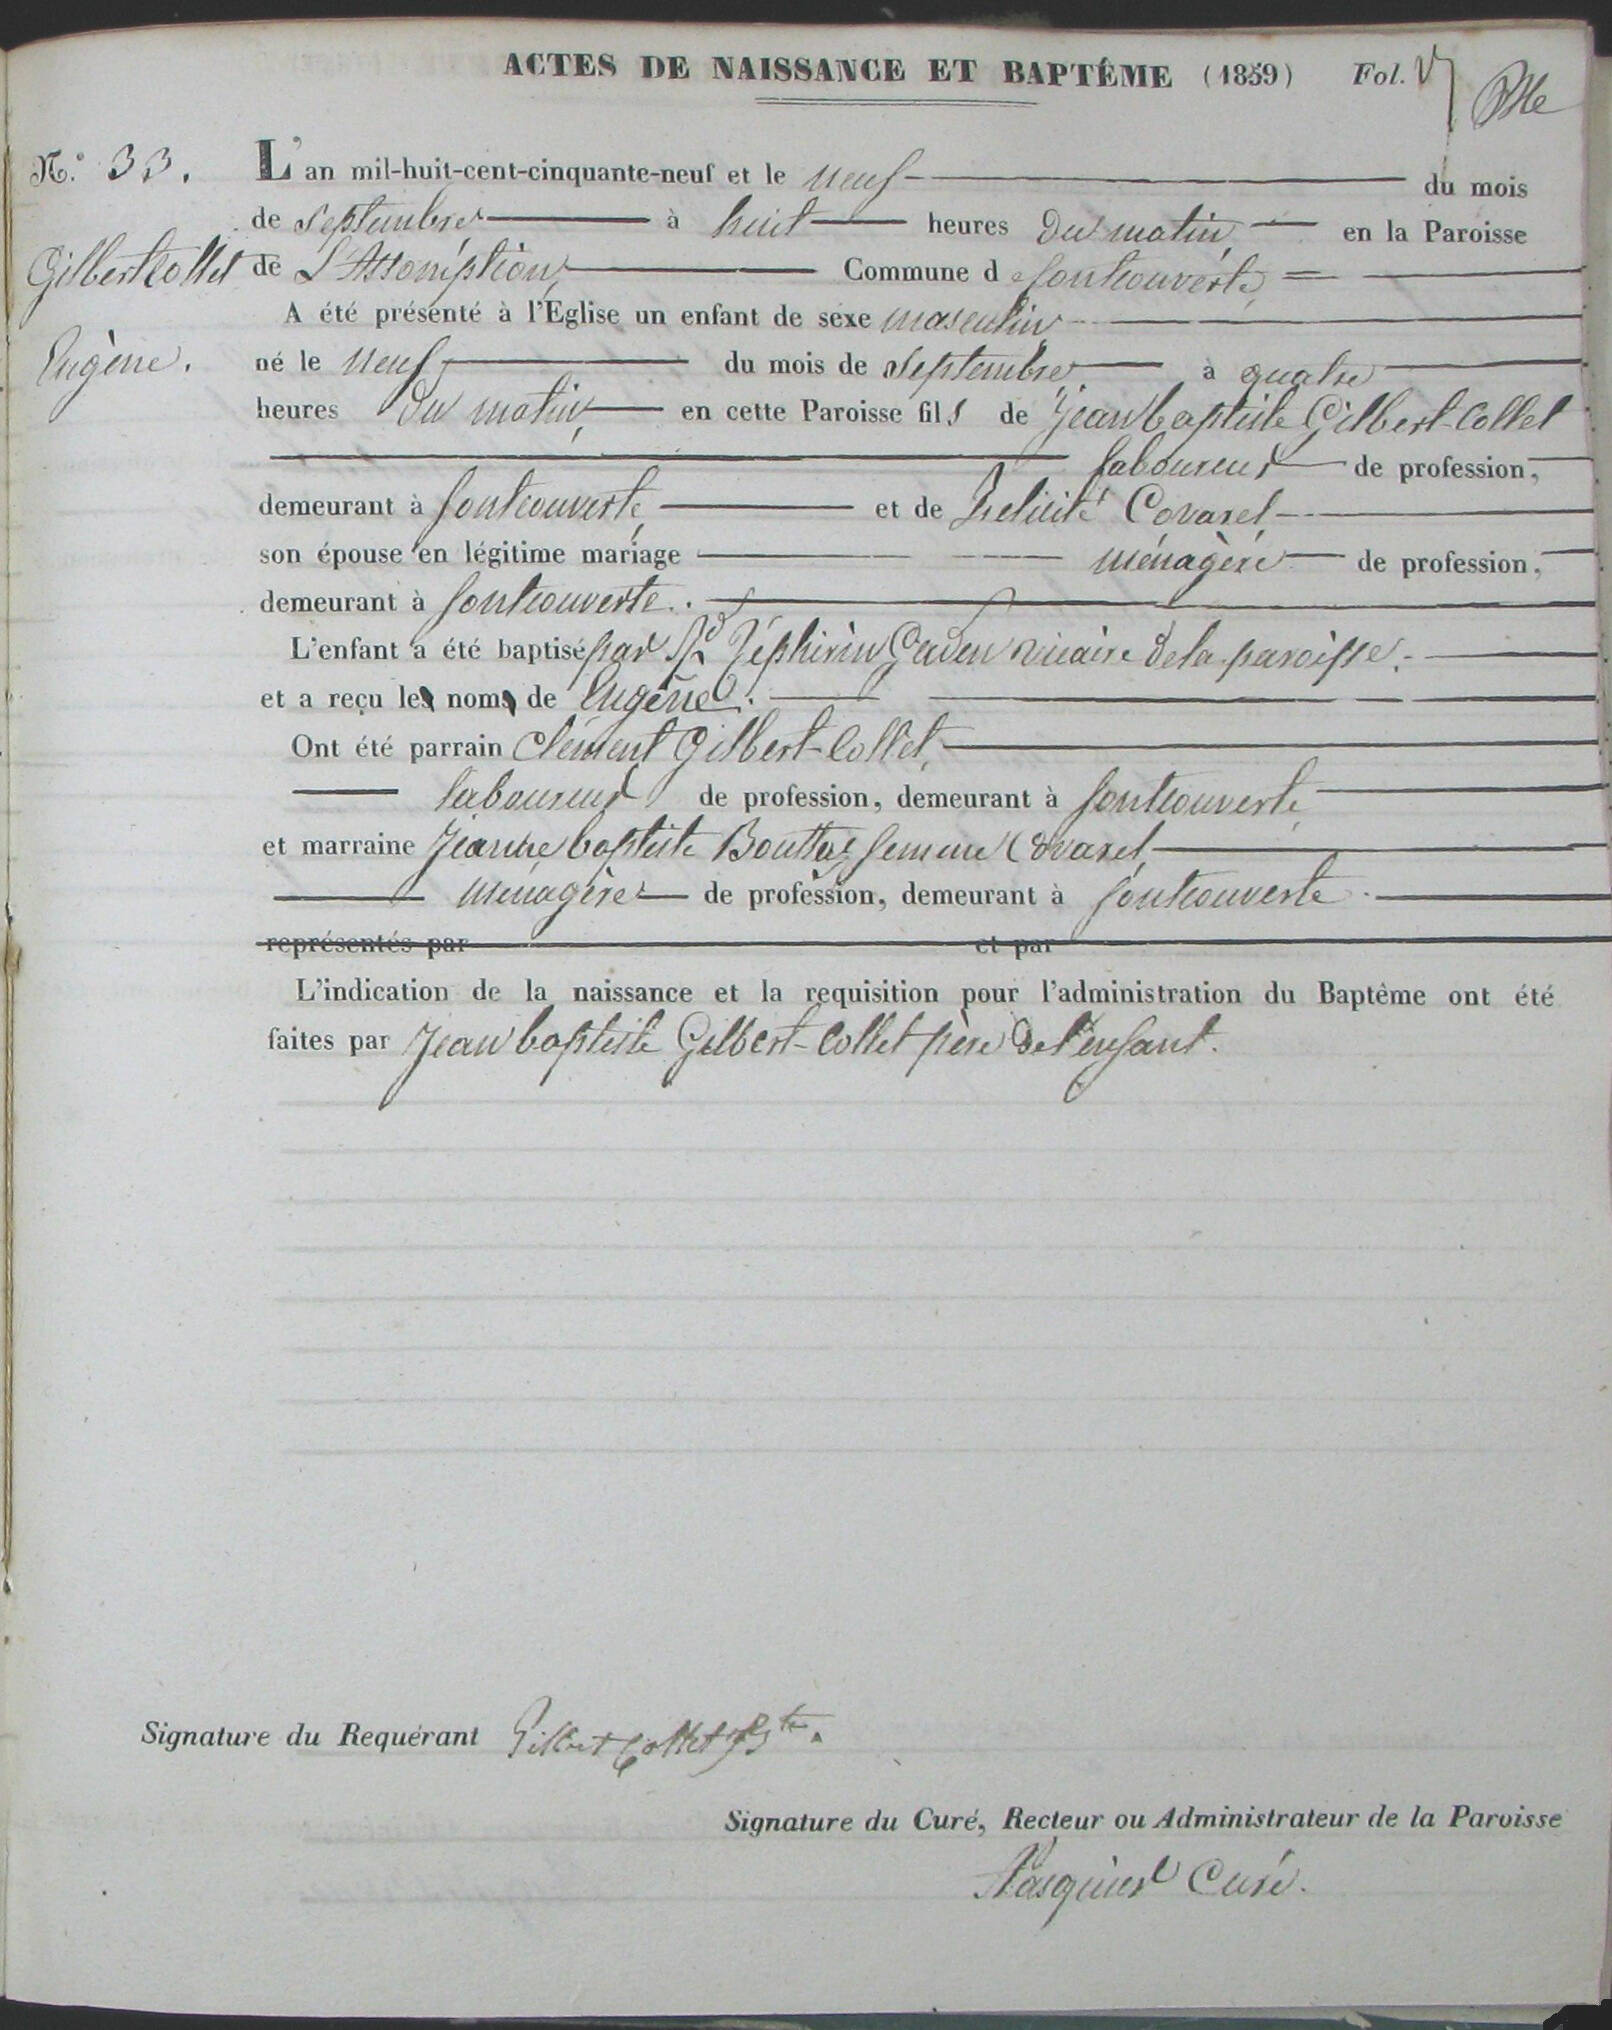 ACTES DE NAISSANCE ET BAPTÊME (1859) Fol.
N.° 33.
Gilbert Collet
Eugène.
L'an mil-huit-cent-cinquante-neuf et le neuf du mois
de Septembre à huit heures du matin, en la Paroisse
de L'Assomption, Commune de fontcouverte,
A été présenté à l'Eglise un enfant de sexe masculin
né le neuf du mois de Septembre à quatre
heures du matin, en cette Paroisse fils de Jean baptiste Gilbert-Collet
laboureur de profession,
demeurant à fontcouverte, et de Félicité Covarel
son épouse en légitime mariage ménagère de profession,
demeurant à fontcouverte.
L'enfant a été baptisé par Rd Zéphirin vicaire de la paroisse.
et a reçu les noms de Eugène.
Ont été parrain Clément Gilbert-Collet,
laboureur de profession, demeurant à fontcouverte,
et marraine Jeanne baptiste Bouttaz femme Covarel
ménagère de profession, demeurant à fontcouverte.
représentés par et par
L'indication de la naissance et la requisition pour l'administration du Baptême ont été
faites par Jean baptiste Gilbert-Collet père de l'enfant.
Signature du Requérant Gilbert Collet Jn Bte.
Signature du Curé, Recteur ou Administrateur de la Paroisse
Pasquier Curé.